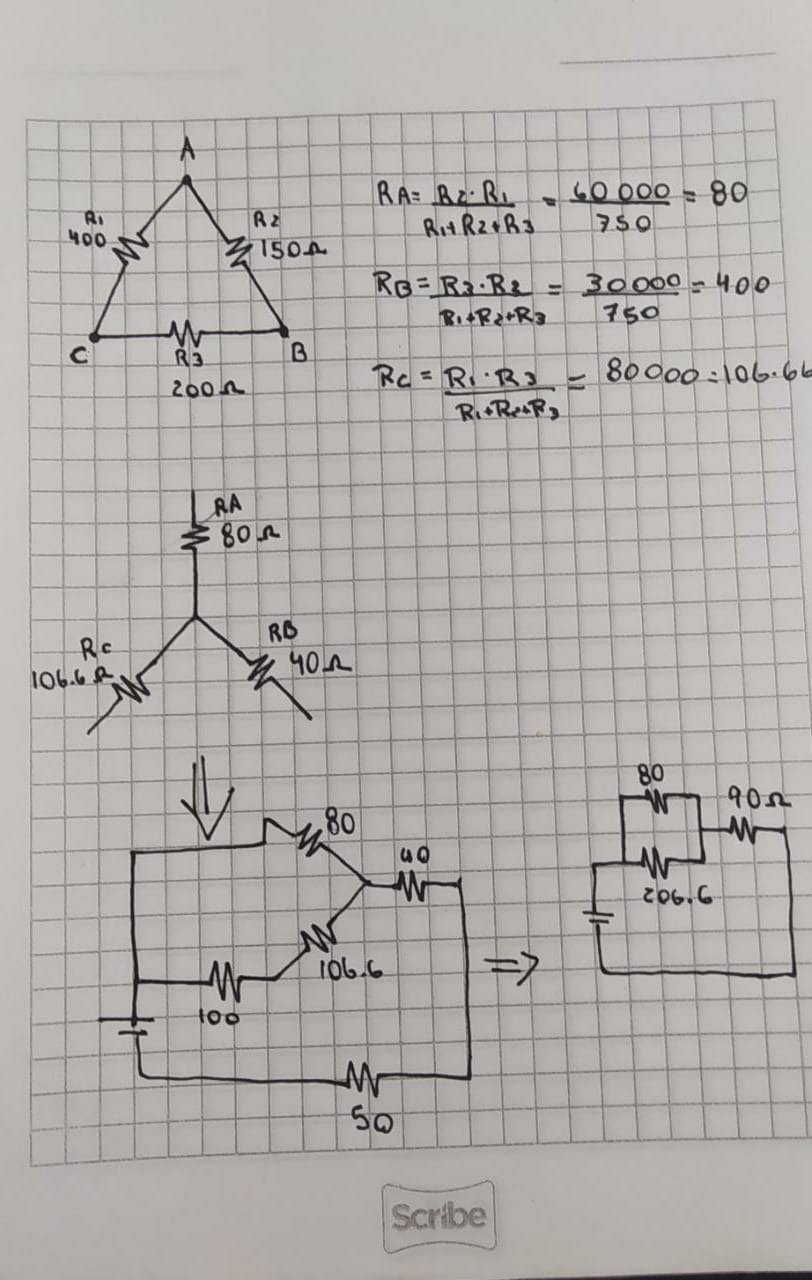 A
R1
400
R2
150Ω
C
R3
B
200Ω
RA = R2·R1 / R1+R2+R3 = 60 000 / 750 = 80
RB = R3·R2 / R1+R2+R3 = 30 000 / 750 = 400
Rc = R1·R3 / R1+R2+R3 = 80000 = 106.66
RA
80Ω
Rc
106.6Ω
RB
40Ω
80
40
106.6
100
50
80
90Ω
206.6
⇒
Scribe